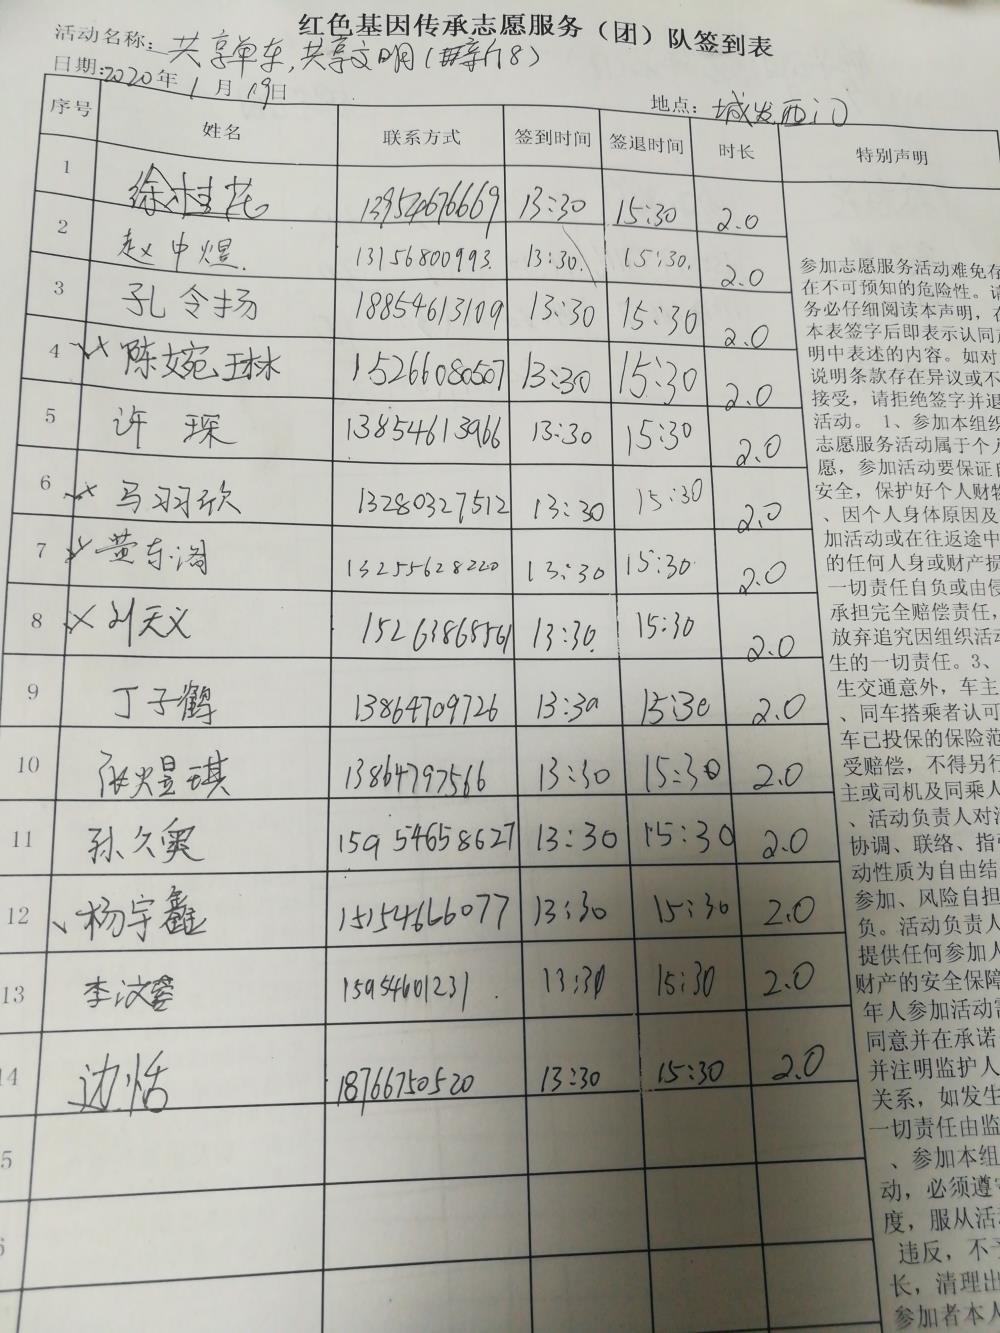 红色基因传承志愿服务（团）队签到表
活动名称：共享单车，共享文明
日期：2020年1月19日
地点：城发西门
序号 姓名 联系方式 签到时间 签退时间 时长 特别声明
1 徐桂花 13954676669 13:30 15:30 2.0
2 赵中煜 13156800993 13:30 15:30 2.0
3 孔令扬 18854613109 13:30 15:30 2.0
4 陈婉琳 15266080507 13:30 15:30 2.0
5 许琛 13854613966 13:30 15:30 2.0
6 马羽欣 13280327512 13:30 15:30 2.0
7 黄东 13255628220 13:30 15:30 2.0
8 刘天义 13:30 15:30 2.0
9 丁子鹤 13864709726 13:30 15:30 2.0
10 张煜琪 13864797566 13:30 15:30 2.0
11 孙久奥 15954658627 13:30 15:30 2.0
12 杨宇鑫 15154666077 13:30 15:30 2.0
13 李汶蓉 15954601231 13:30 15:30 2.0
14 边恬 18766750520 13:30 15:30 2.0
5
6
参加志愿服务活动难免存
在不可预知的危险性。请
务必仔细阅读本声明，在
本表签字后即表示认同声
明中表述的内容。如对
说明条款存在异议或不
接受，请拒绝签字并退
活动。 1、参加本组织
志愿服务活动属于个人
愿，参加活动要保证自
安全，保护好个人财物
、因个人身体原因及
加活动或在往返途中
的任何人身或财产损
一切责任自负或由侵
承担完全赔偿责任，
放弃追究因组织活动
生的一切责任。3、
生交通意外，车主
、同车搭乘者认可
车已投保的保险范
受赔偿，不得另行
主或司机及同乘人
、活动负责人对活
协调、联络、指引
动性质为自由结
参加、风险自担
负。活动负责人
提供任何参加人
财产的安全保障
年人参加活动需
同意并在承诺
并注明监护人
关系，如发生
一切责任由监
、参加本组
动，必须遵守
度，服从活动
违反，不予
长，清理出
参加者本人